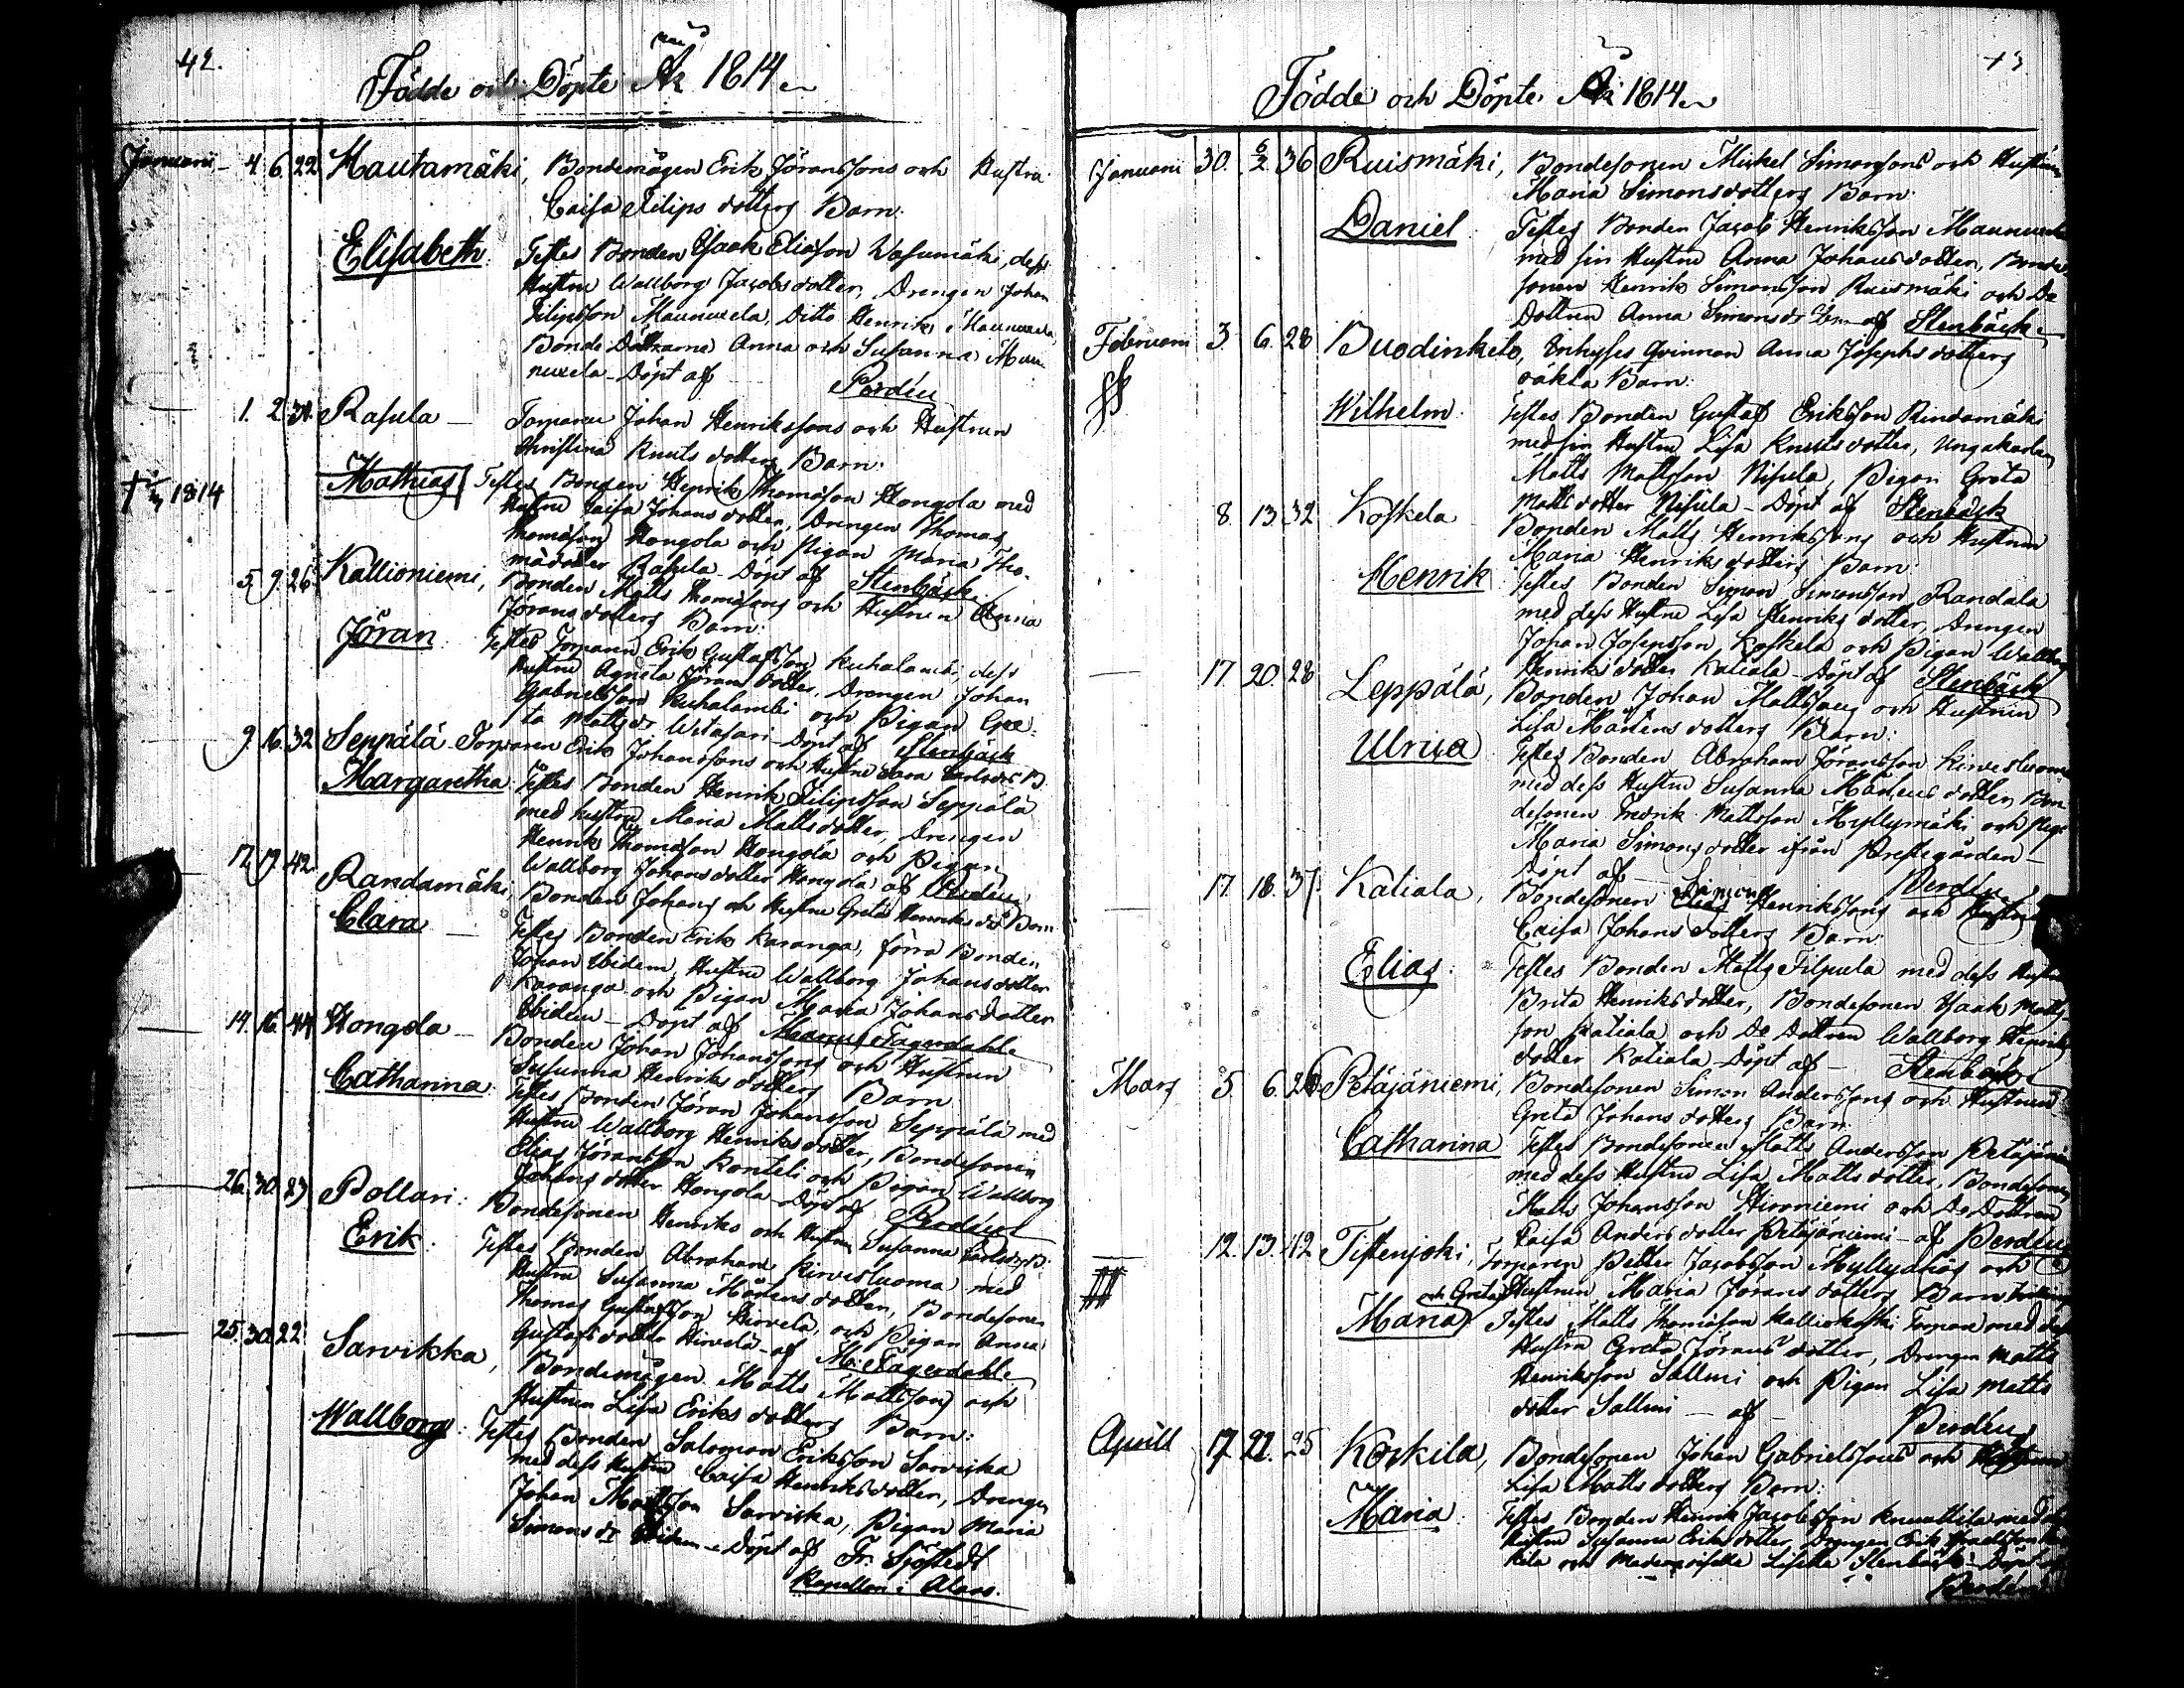 42.
Födde och Döpte År 1814
Januarii 4 6 22 Hautamäki, Bondemågen Erik Jöranssons och Hustru
Caisa Filips dotters Barn.
Elisabeth Testes Bonden Esaak Eliasson Wasumäki, dess
Hustru Wallborg Jacobs dotter, Drengen Johan
Filipsson Maunuxela, Ditto Henrik i Maunuxela,
Bonde Döttrarne Anna och Susanna Mau-
nuxela - Döpt af Perdén
1. 2 Rasula - Torparen Johan Henrikssons och Hustrun
Christina Knuts dotters Barn.
1814 Mathias Testes Henrik Thomasson Hongola med
Hustru Caisa Johans dotter, Drengen Thomas
Thomasson Hongola och Pigan Maria Tho-
mædotter Rasula - Döpt af Stenbäck
5. 9. 26 Kallioniemi, Bonden Matts Thomassons och Hustrun Anna
Jörans dotters Barn.
Jöran Testes Torparen Erik Gustafsson Kuhalambi, dess
Hustru Agneta Jörans dotter, Drengen Johan
Gabrielsson Kuhalambi och Pigan Gre-
ta Mattsdr Witasari - Döpt af Stenbäck
9. 16. 32 Seppälä - Torparen Erik Johanssons och Hustru Sara Carlsdrs B.
Margaretha Testes Bonden Henrik Filipsson Seppälä
med hustru Maria Matts dotter, Drengen
Henrik Thomasson Hongola och Pigan
Wallborg Johans dotter Hongola af Perdén
12. 17. 42 Randamäki, Bonden Johans och Hustru Greta Henriks drs Barn
Clara - Testes Bonden Erik Karanga, förra Bonden
Johan Ibidem, Hustru Wallborg Johans dotter
Karanga och Pigan Maria Johans dotter
Ibidem - Döpt af Magnus Fagerdahl
14. 16. 44 Hongola - Bonden Johan Johanssons och Hustrun
Susanna Henriks dotters Barn
Catharina Testes Bonden Jöran Johansson Seppälä med
Hustru Wallborg Henriks dotter, Bondesonen
Elias Jöransson Konteli och Pigan Wallborg
Johans dotter Hongola - Döpt af Perdén
26. 30. 23 Pollari: Bondesonen Henriks och Hustru Susanna Carlsdrs B.
Erik. Testes Bonden Abraham Kirvesluoma med
Hustru Susanna Mårtens dotter, Bondesonen
Thomas Gustafsson Hirvelä, och Pigan Anna
Gustafs dotter Hirvelä - af M. Fagerdahl
25. 30. 22 Sarvikka, Bondemågen Matts Mattsson och
Hustrun Lisa Eriks dotters Barn:
Wallborg: Testes Bonden Salomon Eriksson Sarvicka
med dess Hustru Caisa Henriks dotter, Drengen
Johan Mattsson Sarvicka, Pigan Maria
Simons dr Ibidem - Döpt af Fr. Sjöstedt
Kapellan i Alavo.
Födde och Döpte År 1814
Januarii 30. 6/2 36 Ruismäki, Bondesonen Mickel Simonssons och Hustrun
Maria Simons dotters Barn.
Daniel Testes Bonden Jacob Henriksson
med sin Hustru Anna Johans dotter, Bonde-
sonen Henrik Simonsson Ruismäki och Do
Dottren Anna Simons dr Ibm - af Stenbäck
Februarii 3. 6. 28 Enhyses Qvinnan Anna Josephs dotters
oäkta Barn.
Wilhelm Testes Bonden Gustaf Eriksson Rindamäki
med sin Hustru Lisa Knuts dotter, ungakarlen
Matts Mattsson Nisula, Pigan Greta
Matts dotter Nisula - Döpt af Stenbäck
8. 13. 32 Koskela Bonden Matts Henrikssons och Hustrun
Maria Henriks dotters Barn.
Henrik Testes Bonden Simon Simonsson Randala
med dess Hustru Lisa Henriks dotter, Drengen
Johan Josephsson Koskela och Pigan Wallborg
Henriks dotter Katiala - Döpt af Stenbäck
17. 20. 28 Leppälä, Bonden Johan Mattssons och Hustrun
Lisa Mårtens dotters Barn.
Ulrica Testes Bonden Abraham Jöransson Kirvesluoma
med dess Hustru Susanna Mårtens dotter, Bon-
desonen Fredrik Mattsson Myllymäki och Pigan
Maria Simons dotter ifrån Prestegården -
Döpt af Perdén
17. 18. 37. Katiala, Bondesonen Simons Henrikssons och Hustrun
Caisa Johans dotters Barn
Elias: Testes Bonden Matts Filpula med dess Hustru
Brita Henriks dotter, Bondesonen Esaak Matts-
son Katiala och Do Dottren Wallborg Henriks
dotter Katiala Döpt af - Stenbäck
Mars 5. 6. 26 Petäjäniemi, Bondesonen Simon Anderssons och Hustrun
Greta Johans dotters Barn.
Catharina Testes Bondesonen Matts Andersson Petäjäniemi
med dess Hustru Lisa Matts dotter, Bondesonen
Matts Johansson Hironiemi och Do Dottren
Caisa Anders dotter Petäjäniemi - af Perdén
12. 13. 42 Tistenjoki, Torparen Petter Jacobsson och
och Greta Hustrun Maria Jörans dotters Barn
Maria Testes Matts Thomasson Kalliokoski Torpare med dess
Hustru Greta Jörans dotter, Drengen Matts
Henriksson Sallmi och Pigan Lisa Matts
dotter Sallmi - af - Perdén
Aprill 17. 22. 25 Korkila, Bondesonen Johan Gabrielssons och Hustrun
Lisa Matts dotters Barn.
Maria Testes Bonden Henrik Jacobsson Knuuttila med
Hustru Susanna Eriks dotter, Drengen Erik
kila och Lisette Stenbäck - Döpt af
Perdén